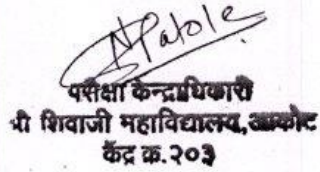 NPatole
परीक्षा केन्द्राधिकारी
श्री शिवाजी महाविद्यालय,आकोट
केंद्र क्र.२०३